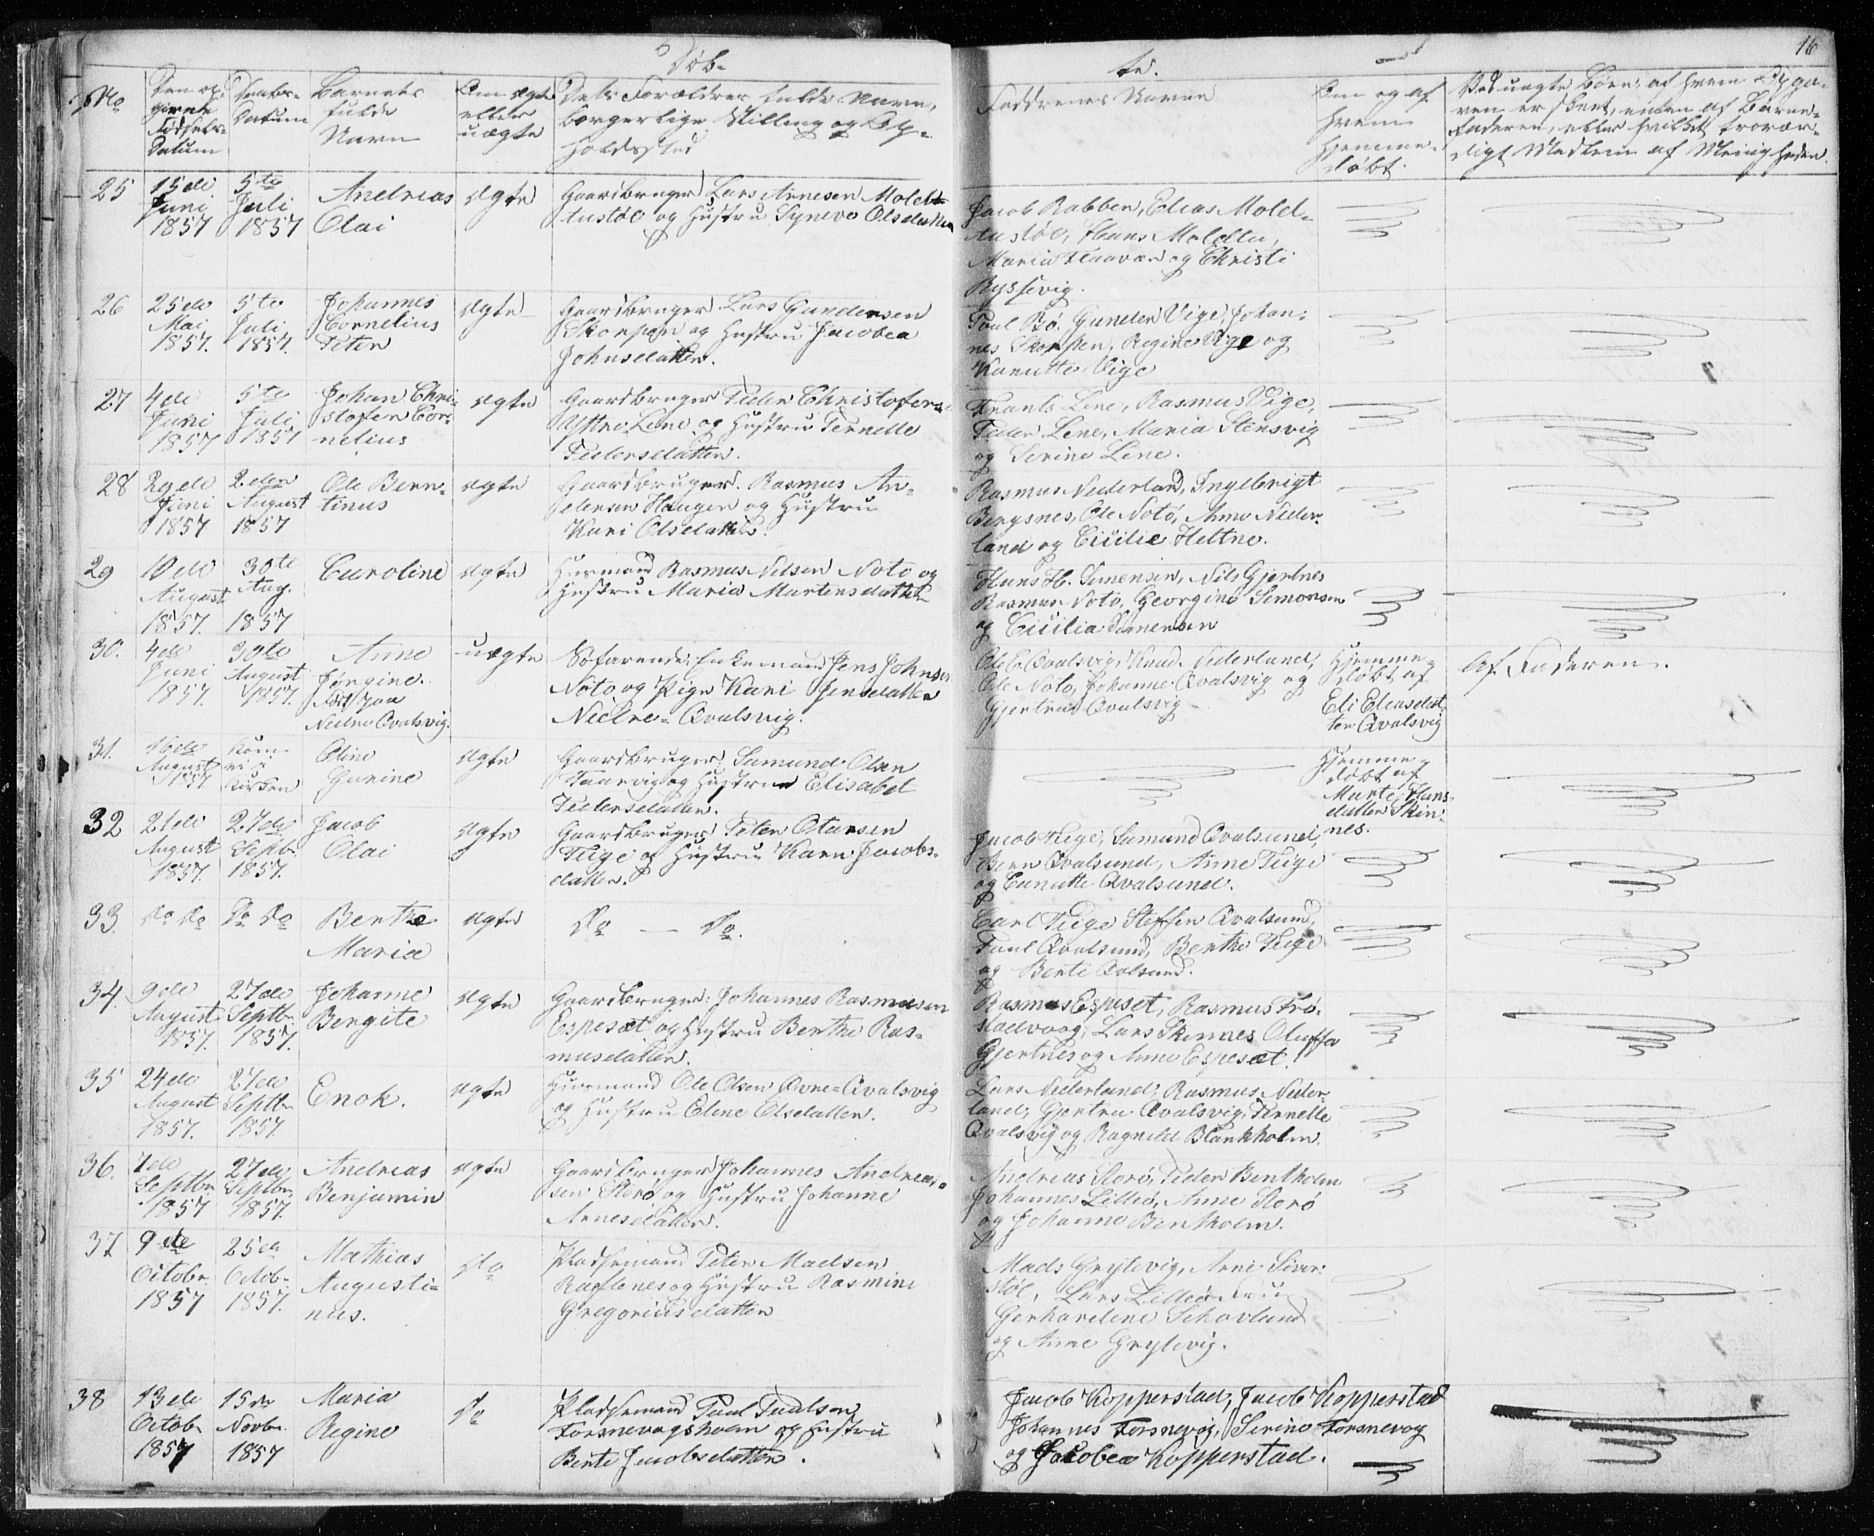 Døb-
te.
16
No
Den op-
givne
Fødsels-
Datum
Daabs-
Datum
Barnets
fulde
Navn
Om ægte
eller
uægte
Dets Forældres fulde Navn,
borgerlige Stilling og Op-
holdssted
Faddrenes Navne
Om og af
hvem
hjemme-
døbt.
Ved uægte Børn: af hvem Opga-
ven er skeet, enten af Barne-
faderen, eller hvilket trovær-
digt Medlem af Menigheden.
25
15de
Juni
1857
5te
Juli
1857
Andreas
Olai
ægte
Gaardbruger Lars Arnesen Moldtu-
støl og Hustru Syneve Olsdatter
Jacob Rabben, Elias Mold-
tustøl, Hans Moldtu,
Maria Flaavær og Christi
Ryssevig.
26
25de
Mai
1857.
5te
Juli
1857.
Johannes
Cornelius
Peter
ægte
Gaardbruger Lars Gundersen
Skorpen og Hustru Jacobea
Johnsdatter.
Poul Bø, Gunder Vige, Johan-
nes Skorpen, Regine Vige og
Kanutte Vige
27
4de
Juni
1857
5te
Juli
1857
Johan Chri-
stofer Cor-
nelius
ægte
Gaardbruger Peder Christofers.
Yttre Lene og Hustru Pernelle
Pedersdatter.
Frants Lene, Rasmus Vige,
Peder Lene, Maria Stensvig
og Serine Lene.
28
29de
Juni
1857
2den
August
1857
Ole Bern-
tinus
ægte
Gaardbruger. Rasmus An-
dersen Haugen og Hustru
Kari Olsdatter.
Rasmus Nederland, Ingebrigt
Bergsnes, Ole Notø, Anne Neder-
land og Cicilie Heltne.
29
10de
August
1857.
30te
Aug.
1857
Caroline
ægte
Huusmand Rasmus Nilsen Notø og
Hustru Maria Martensdatter
Hans H. Simensen, Nils Gjertnes
Rasmus Notø, Georgine Simonsen
og Cicilia Simensen
30.
4de
Juni
1857.
30te
August
1857.
Anne
Jørgine.
Født paa
Nedre Qvalsvig.
uægte
Søfarende: Enkemand Jens Johnsen
Notø og Pige Kari Jensdatter
Nedre-Qvalsvig.
Ole C. Qvalsvig, Knud Nederland,
Ole Notø, Johanne Qvalsvig og
Gjertrud Qvalsvig
Hjemme-
døbt af
Eli Eliasdat-
ter Qvalsvig
Af Faderen.
31.
16de
August
1857
Kom-
ni i
Kirken
Oline
Gurine
ægte
Gaardbruger Samund Olsen
Taarvig og Hustru Elisabet
Pedersdatter.
Hjemme-
døbt af
Marte Hans-
datter Skin-
nes.
32
21de
August
1857.
27de
Septb.
1857.
Jacob
Olai
ægte
Gaardbruger Peter Olausen
Teige og Hustru Karen Jacobs-
datter.
Jacob Teige, Samund Qvalsund,
Bern Qvalsund, Anne Teige
og Canutte Qvalsund.
33.
Do Do
Do Do
Berthe
Maria
ægte
Do — Do.
Carl Teige Steffen Qvalsund,
Paul Qvalsund, Berthe Teige
og Berte Qvalsund.
34.
9de
August
1857.
27de
Septbr
1857.
Johanne
Bergite
ægte
Gaardbruger: Johannes Rasmusen
Espesæt og Hustru Berthe Ras-
musdatter.
Rasmus Espeset, Rasmus Frø-
stadvog, Lars Skinnes Oluffa
Gjertnes og Anne Espesæt.
35
24de
August
1857.
27de
Septbr
1857.
Enok.
ægte
Huusmand Ole Olsen Øvre-Qvalsvig
og Hustru Olene Olsdatter.
Lars Nederland, Rasmus Neder-
land, Gjertru Qvalsvig, Pernelle
Qvalsvig og Ragnild Blankholm.
36.
7de
Septbr
1857
27de
Septbr.
1857.
Andreas
Benjamin
ægte
Gaardbruger Johannes Andrea-
sen Storø og Hustru Johanne
Arnesdatter.
Andreas Storø, Peder Bentholm
Johannes Lilleø, Anne Storø
og Johanne Bentholm.
37
9de
Octobr.
1857
25de
Octob.
1857.
Mathias
Augusti-
nus.
Do
Pladsemand Peter Madsen
Rafsnes og Hustru Rasmine
Gregoriusdatter
Mads Grytevig, Arne Siver-
støl, Lars Lilleø Fru
Gerhardine Schavland
og Anne Grytevig.
38
13de
Octob.
1857
15de
Novbr.
1857
Maria
Regine
Do
Pladsemand Paul Paulsen
Torsnevogsholm og Hustru
Berte Jacobsdatter.
Jacob Kopperstad, Jacob Kopperstad
Johannes Torsnevog, Serine Torsnevog
og Jakobea Kopperstad.